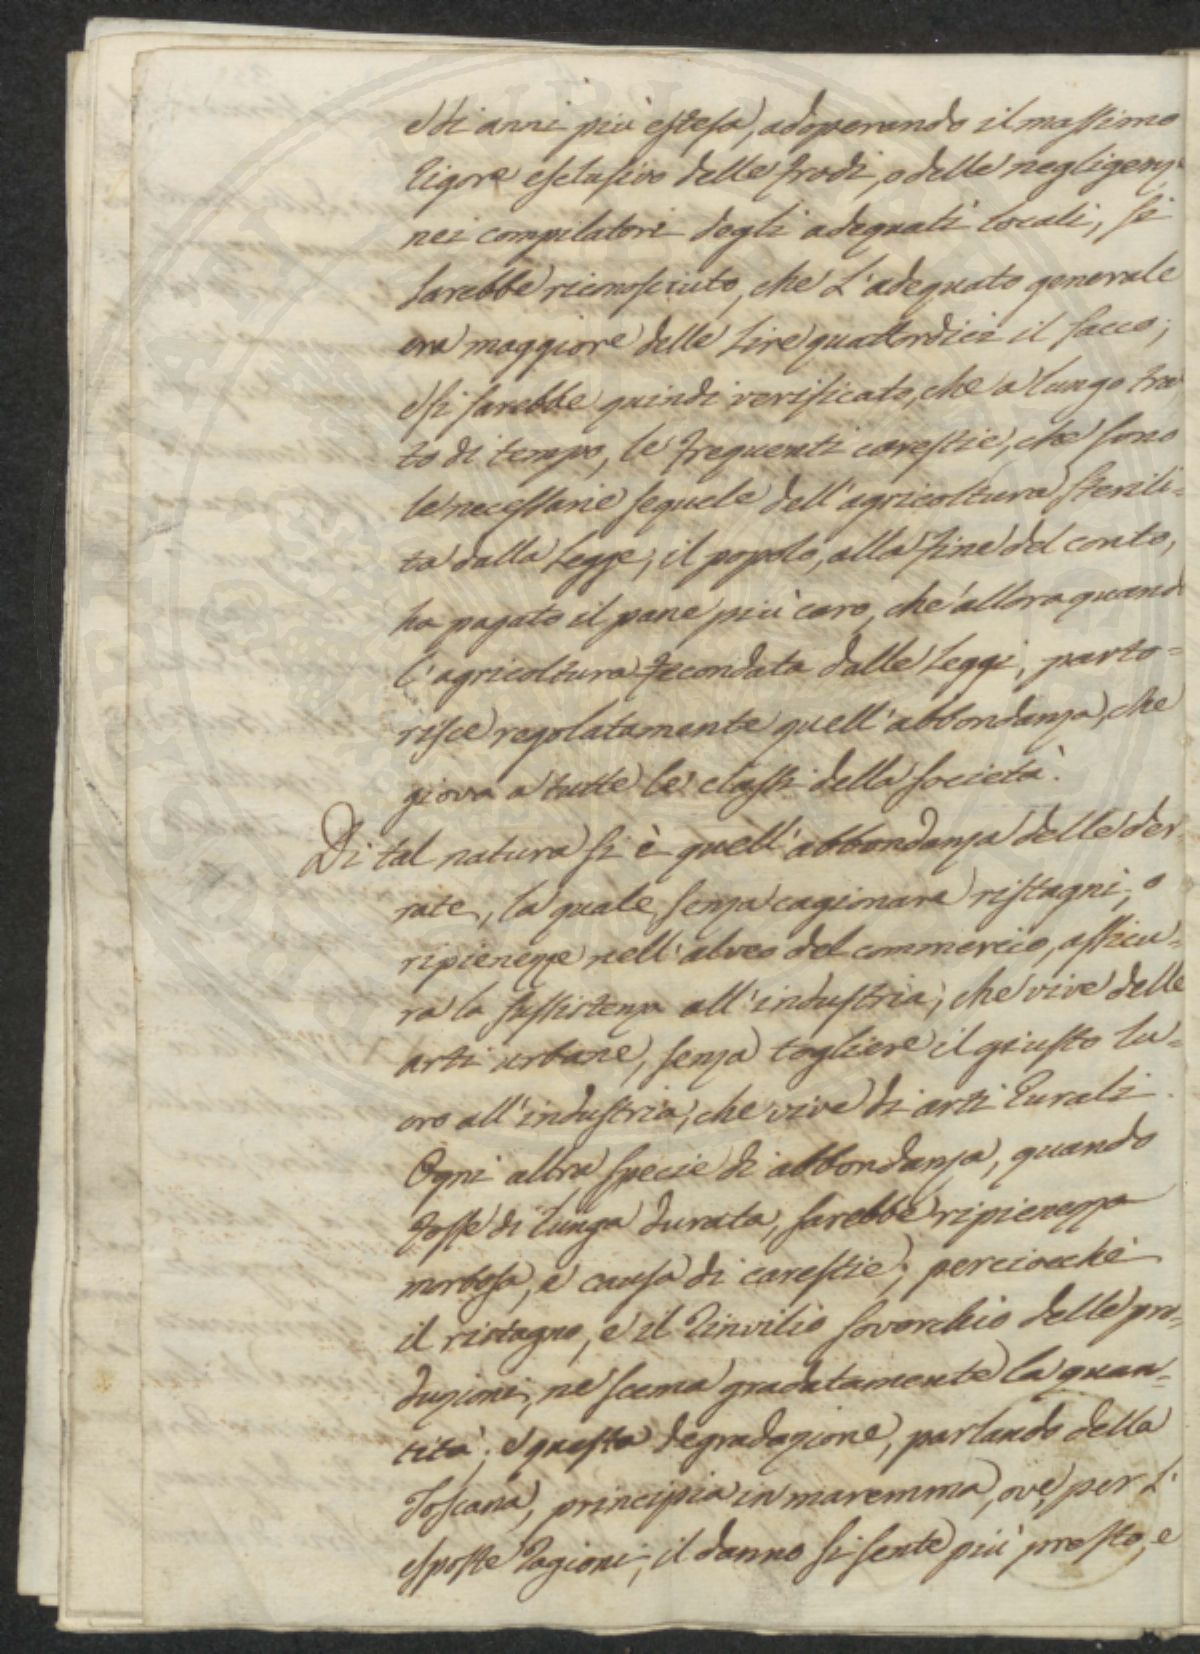 e di anni più estesa, adoperando il massimo
rigore esclusivo delle frodi, o delle negligenz
nei compilatori degli adequati locali, si
sarebbe riconosciuto, che l'adequato generale
era maggiore delle Lire quattordici il sacco;
e si sarebbe quindi verificato, che a lungo trat
to di tempo, le frequenti carestie, che sono
le necessarie sequele dell'agricoltura sterili=
ta dalla Legge, il popolo, alla fine del conto,
ha pagato il pane più caro, che allora quand
l'agricoltura fecondata dalle Leggi, parto=
risce regolatamente quell'abbondanza, che
giova a tutte le classi della società.
Di tal natura si è quell'abbondanza delle der
rate, la quale, senza cagionare ristagni, o
ripienezze nell'alveo del commercio, assicu=
ra la sussistenza all'industria, che vive delle
arti urbane, senza togliere il giusto lu=
cro all'industria, che vive di arti rurali.
Ogni altra specie di abbondanza, quando
fosse di lunga durata, sarebbe ripienezza
morbosa, e causa di carestie; perciocchè
il ristagno, e il rinvilio soverchio delle pro=
duzioni, ne scema gradatamente la quan=
tità; e questa degradazione, parlando della
Toscana, principia in maremma, ove, per l'
esposte ragioni, il danno si sente più presto, e